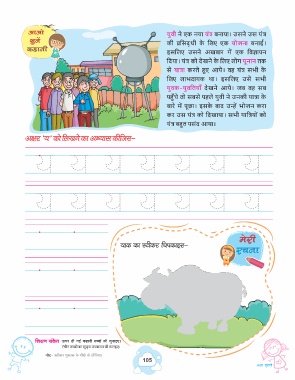 आओ
सुनें
कहानी
युवी ने एक नया यंत्र बनाया। उसने उस यंत्र
की प्रसिद्धी के लिए एक योजना बनाई।
इसलिए उसने अखबार में एक विज्ञापन
दिया। यंत्र को देखने के लिए लोग यूनान तक
से यात्रा करते हुए आये। वह यंत्र सभी के
लिए लाभदायक था। इसलिए उसे सभी
युवक-युवतियाँ देखने आये। जब वह सब
पहुँचे तो सबसे पहले युवी ने उनकी यात्रा के
बारे में पूछा। इसके बाद उन्हें भोजन करा
कर उस यंत्र को दिखाया। सभी यात्रियों को
यंत्र बहुत पसंद आया।
अक्षर 'य' को लिखने का अभ्यास कीजिए-
य य य य य य य
य य य य य य य
मेरी
रचना
याक का स्टीकर चिपकाइए-
शिक्षण संकेत
105